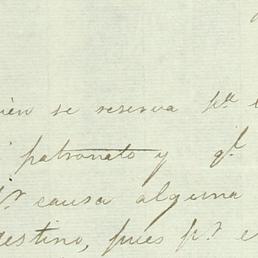 ien se reserva pᵃ
patronato y qᵉ
pʳ causa alguna
estino, pues pʳ e